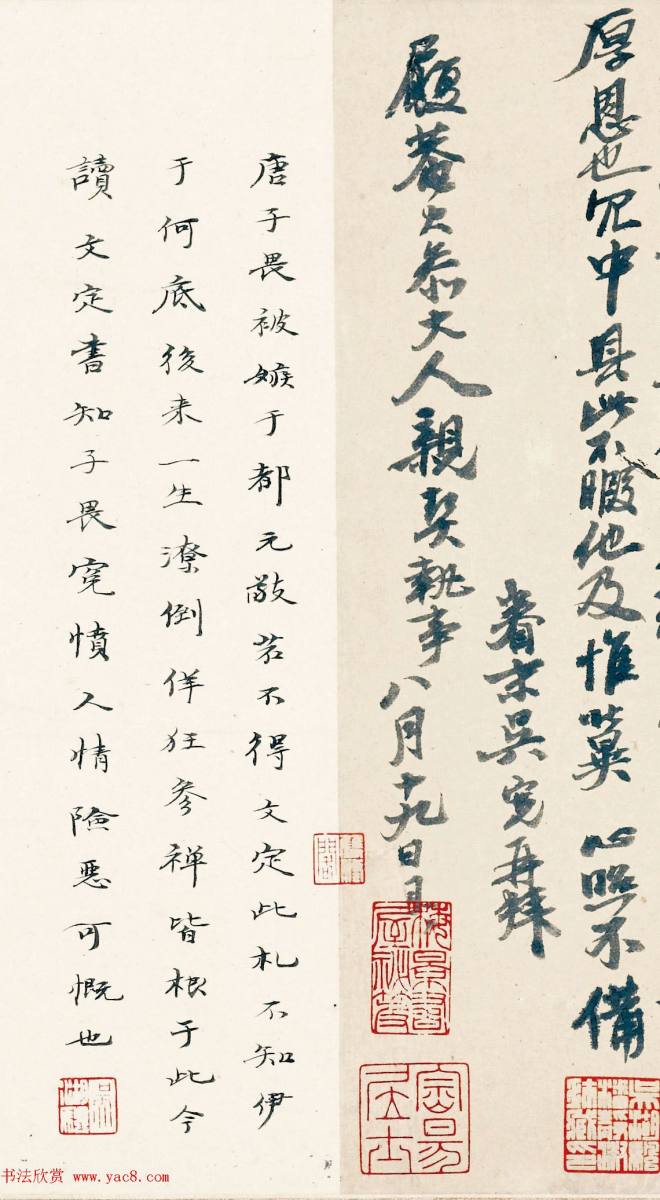 厚恩也冗中具此不暇他及惟冀 心照不備
眷末吳寬再拜
履菴大参大人親契執事 八月十九日具
唐子畏被嫉于都元敬若不得文定此札不知伊
于何底後来一生潦倒佯狂参禅皆根于此今
讀文定書知子畏寃憤人情險惡可慨也
梅景書屋祕笈
密均居士
吳湖帆
书法欣赏 www.yac8.com